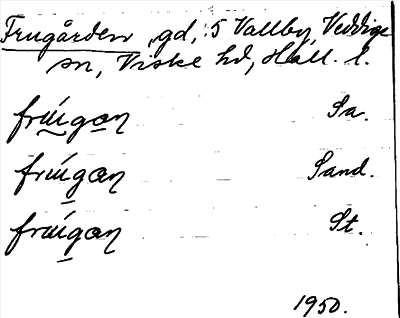 Frugården, gd, 5 Vallby, Veddige
sn, Viske hd, Hall. l.
frúgaŋ Sa.
frúgaŋ Sand.
frúgaŋ St.
1950.